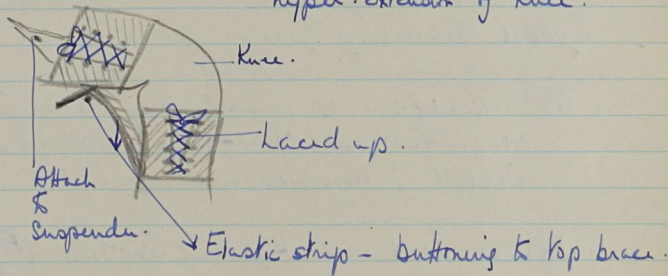 hyper-extension of knee.
Knee.
Laced up.
Attach
to
Suspender.
Elastic strip - buttoning to top brace.